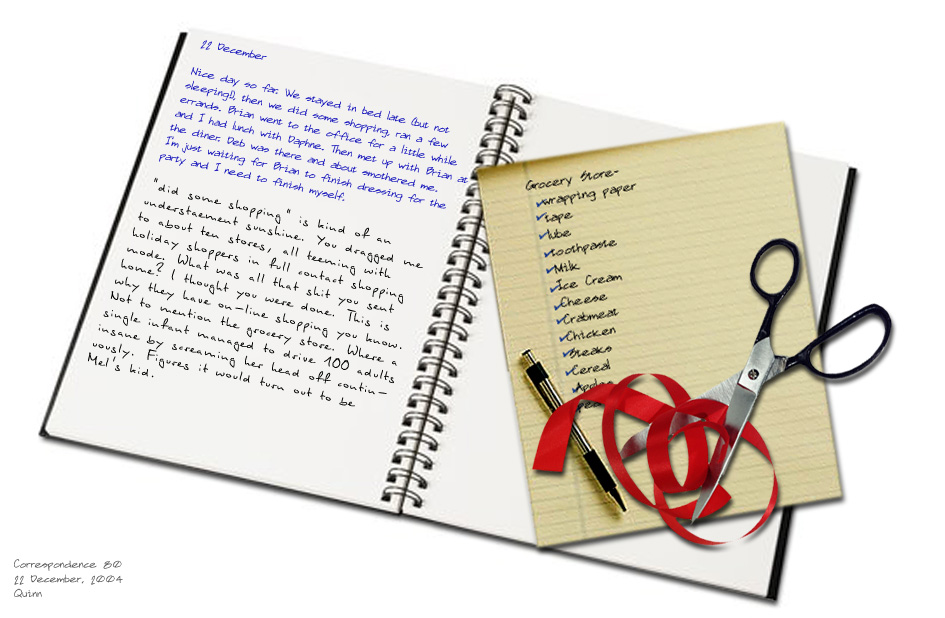 22 December
Nice day so far. We stayed in bed late (but not
sleeping!), then we did some shopping, ran a few
errands. Brian went to the office for a little while
and I had lunch with Daphne. Then met up with Brian at
the diner. Deb was there and about smothered me.
I'm just waiting for Brian to finish dressing for the
party and I need to finish myself.
"did some shopping" is kind of an
understaement sunshine. You dragged me
to about ten stores, all teeming with
holiday shoppers in full contact shopping
mode. What was all that shit you sent
home? I thought you were done. This is
why they have on-line shopping you know.
Not to mention the grocery store. Where a
single infant managed to drive 100 adults
insane by screaming her head off contin-
uously. Figures it would turn out to be
Mel's kid.
Grocery Store-
wrapping paper
tape
lube
toothpaste
Milk
Ice Cream
Cheese
Crabmeat
Chicken
Steaks
Cereal
Apples
Correspondence 80
22 December, 2004
Quinn